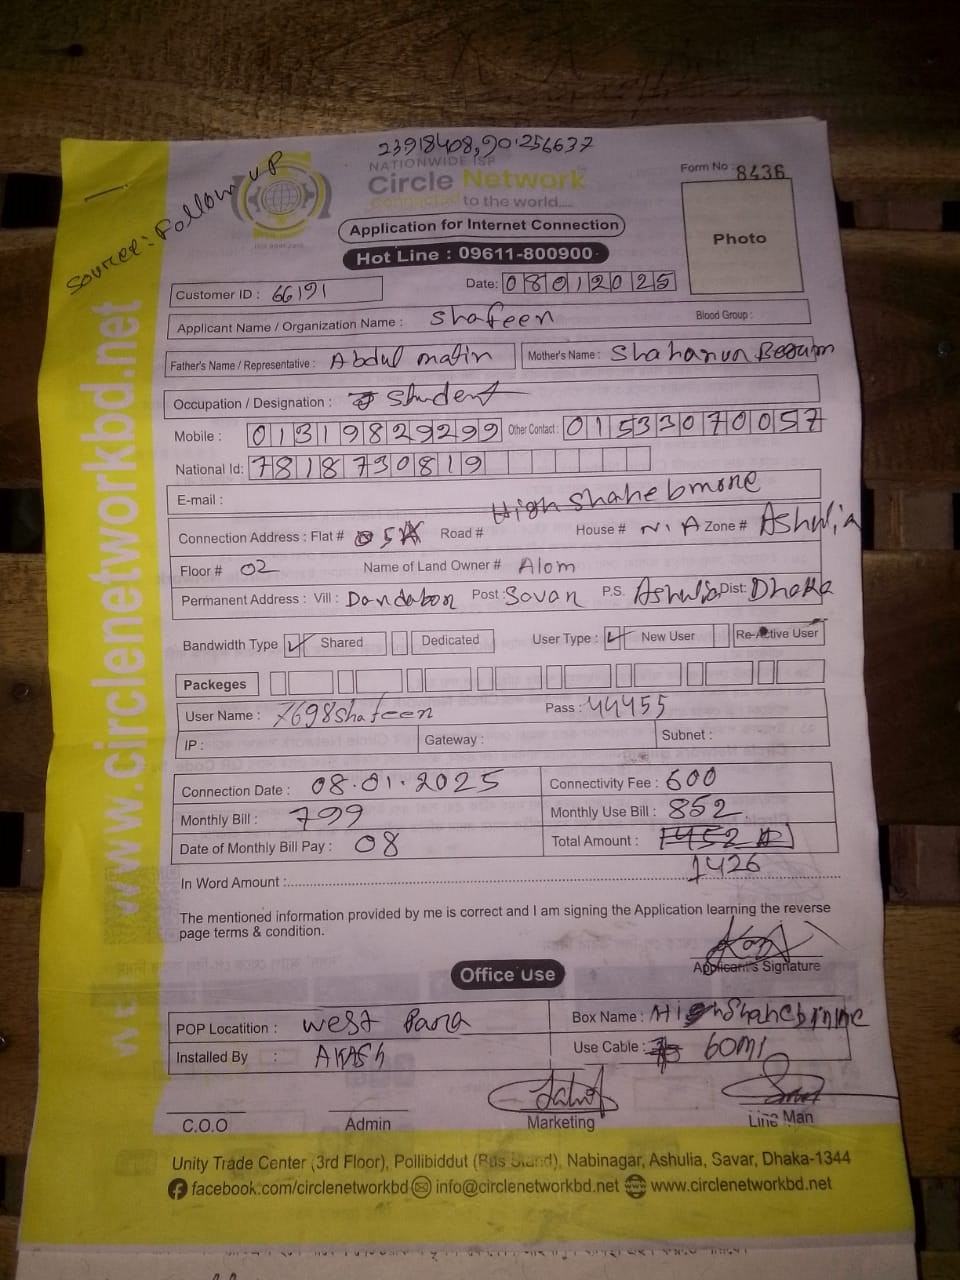 23918408,90.256637
Source: Follow up
NATIONWIDE ISP
Circle Network
Connected to the world....
Form No 8436
Application for Internet Connection
Photo
Hot Line : 09611-800900
Customer ID : 66191 Date: 08012025
Applicant Name / Organization Name : Shafeen Blood Group :
Father's Name / Representative : Abdul matin Mother's Name : Shahanun Begum
Occupation / Designation : Student
Mobile : 01319829299 Other Contact : 01533070057
National Id: 7818730819
E-mail :
High shahebmore
Connection Address : Flat # 5A Road # House # N.A Zone # Ashulia
Floor # 02 Name of Land Owner # Alom
Permanent Address : Vill : Dandabon Post : Savan P.S. Ashulia Dist: Dhaka
Bandwidth Type Shared Dedicated User Type : New User Re-Active User
Packeges
User Name : 7698shafeen Pass : 44455
IP : Gateway : Subnet :
Connection Date : 08.01.2025 Connectivity Fee : 600
Monthly Bill : 799 Monthly Use Bill : 852
Date of Monthly Bill Pay : 08 Total Amount : 1452
1426
In Word Amount :
The mentioned information provided by me is correct and I am signing the Application learning the reverse
page terms & condition.
Applicant's Signature
Office Use
POP Locatition : West Para Box Name : HighShahebmine
Installed By : AKASH Use Cable : 60m
C.O.O Admin Marketing Line Man
Unity Trade Center (3rd Floor), Pollibiddut (Bus Stand), Nabinagar, Ashulia, Savar, Dhaka-1344
facebook.com/circlenetworkbd info@circlenetworkbd.net www.circlenetworkbd.net
www.circlenetworkbd.net